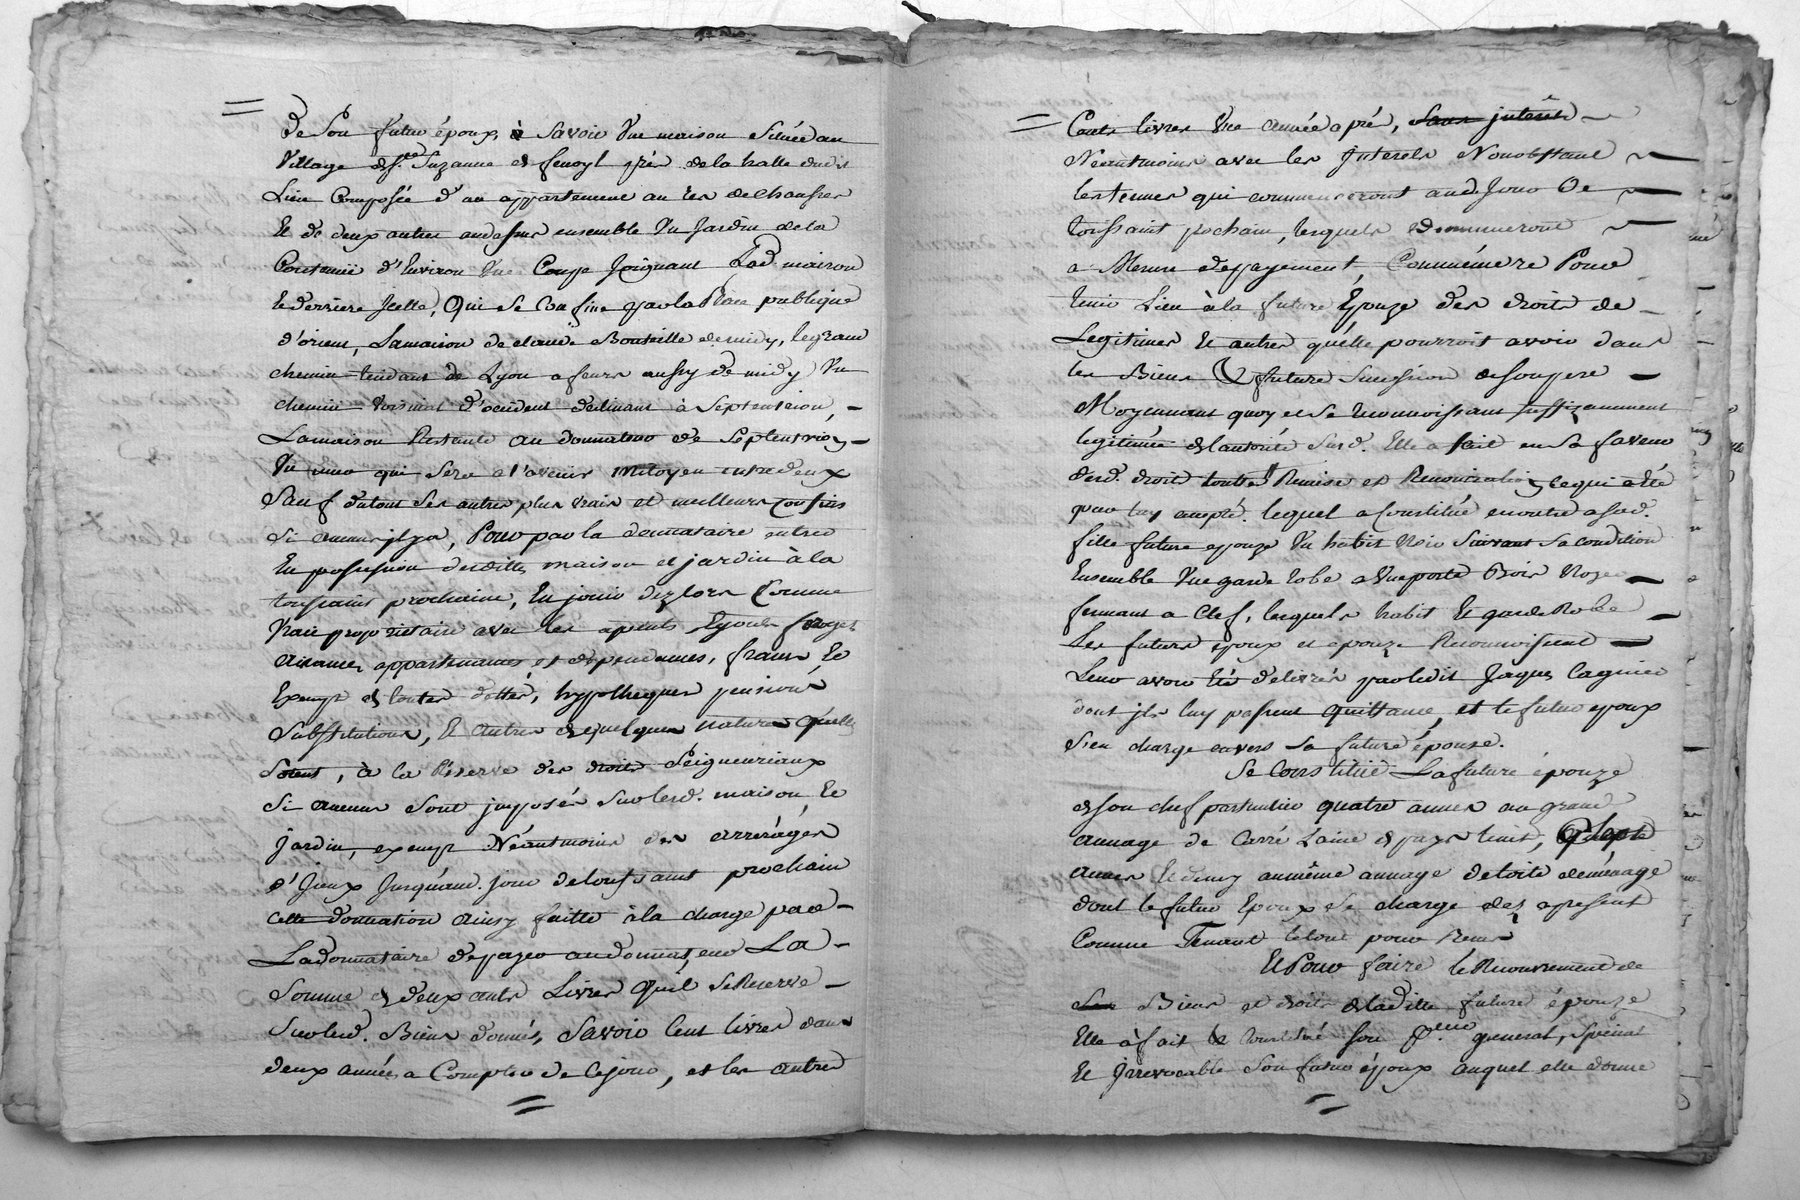 De Son futur époux, à Savoir Une maison Située au
Village de Ste. Suzanne et fenoyl près de la halle dudit
Lieu Composée d'un appartement au rez de chaussez
Et de deux autres audessus ensemble Un Jardin de la
Contenüe d'Environ Une Coupe Joignant Lad. maison
Et derrière Icelle, Qui Se Confine par la Place publique
d'orient, La maison de claude Bouteille de midy, le grand
chemin tendant de Lyon a feurs aussy de midy Un
chemin Voisinal d'occident declinant à Septentrion,
La maison Restante au donnateur de Septentrion
Un mur qui Sera a l'avenir mitoyen entre deux
Sauf du tout Ses autres plus vrais et meilleurs Confins
Si aucuns jl y a, Pour par la donnataire entrer
En possession desdittes maison et jardin à la
toussaint prochaine, En jouir dez lors Comme
Vraie proprietaire avec les
aisances, appartenances et dependances, francs Et
Exempt de toutes dettes, hypotheques pensions
Substitutions, Et autres de quelques natures qu'elles
Soient, à la Réserve des droits Seigneuriaux
Si aucuns Sont imposés Sur lesd. maison Et
Jardin, exempt Néantmoins des arrerages
d'Iceux Jusqu'aud. jour de toussaint prochain
Cette donnation ainsy faitte à la charge par
La donnataire de payer au donnateur La
Somme de deux cents Livres Qu'il Se Reserve
Sur lesd. Biens donnés, Savoir Cent livres dans
deux années a Compter de Ce jour, et les autres
Cents livres Une année après, Sans jnterêts
Néantmoins avec les Jnterets Nonobstant
les termes qui commenceront aud. Jour De
toussaint prochain, lesquels diminueront
a Mesure de payement, Pour
tenir Lieu à la future Épouze des droits de
Legitimes Et autres qu'elle pourroit avoir dans
les Biens & future Succession de Son pere
Moyennant quoy et Se reconnoissant Suffizamment
legitimée de l'autorité Susd. Elle a fait en Sa faveur
desd. droits toutes Remise et Renonciation, ce qui a été
par luy accepté. lequel a Constitué encore a Sad.
fille future epouze Un habit Noir Suivant Sa condition
Ensemble Une garde robe a Une porte Bois Noyer
fermant a Clef, lesquels habit Et garde Robe
Les futurs epoux et epouze Reconnoissent
Leur avoir Eté delivrés par ledit Jâques Cagnier
dont jls luy passent quittance, et le futur epoux
S'en charge envers Sa future épouze.
Se Constitüe La future épouze
de Son chef particulier quatre aunes au grand
aunage de Carré Laine de pays
aunes Et demy au même aunage de toile de ménage
dont le futur Epoux Se charge dez apresent
Comme Tenant le tout pour Reçus
Et Pour faire le Recouvrement de
Biens et droits de ladite future épouze
Elle à fait & Constitué Son general, Special
Et Jrrevocable Son futur époux auquel elle donne